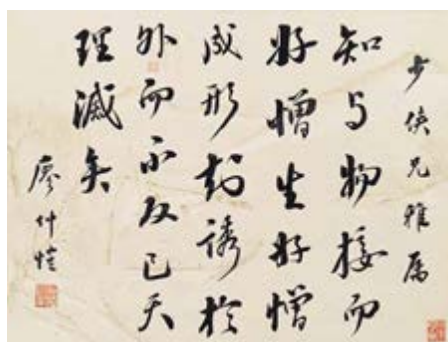 少俠兄雅属
知与物接而
好憎生好憎
成形知誘於
外而不反己天
理滅矣
廖仲愷